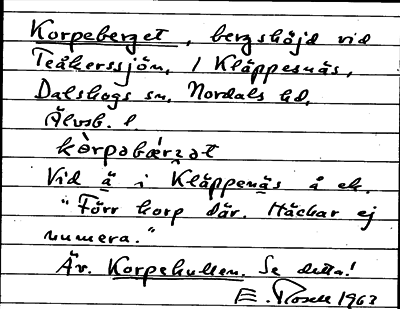 Korpeberget, bergshöjd vid
Teåkerssjön, / Kläppesnäs,
Dalskogs sn, Nordals hd,
Älvsb. l.
kòrpəbærʒət
Vid ä i Kläppenäs å ek.
"Förr korp där. Häckar ej
numera."
Äv. Korpekullen. Se detta!
E. Rosell 1963